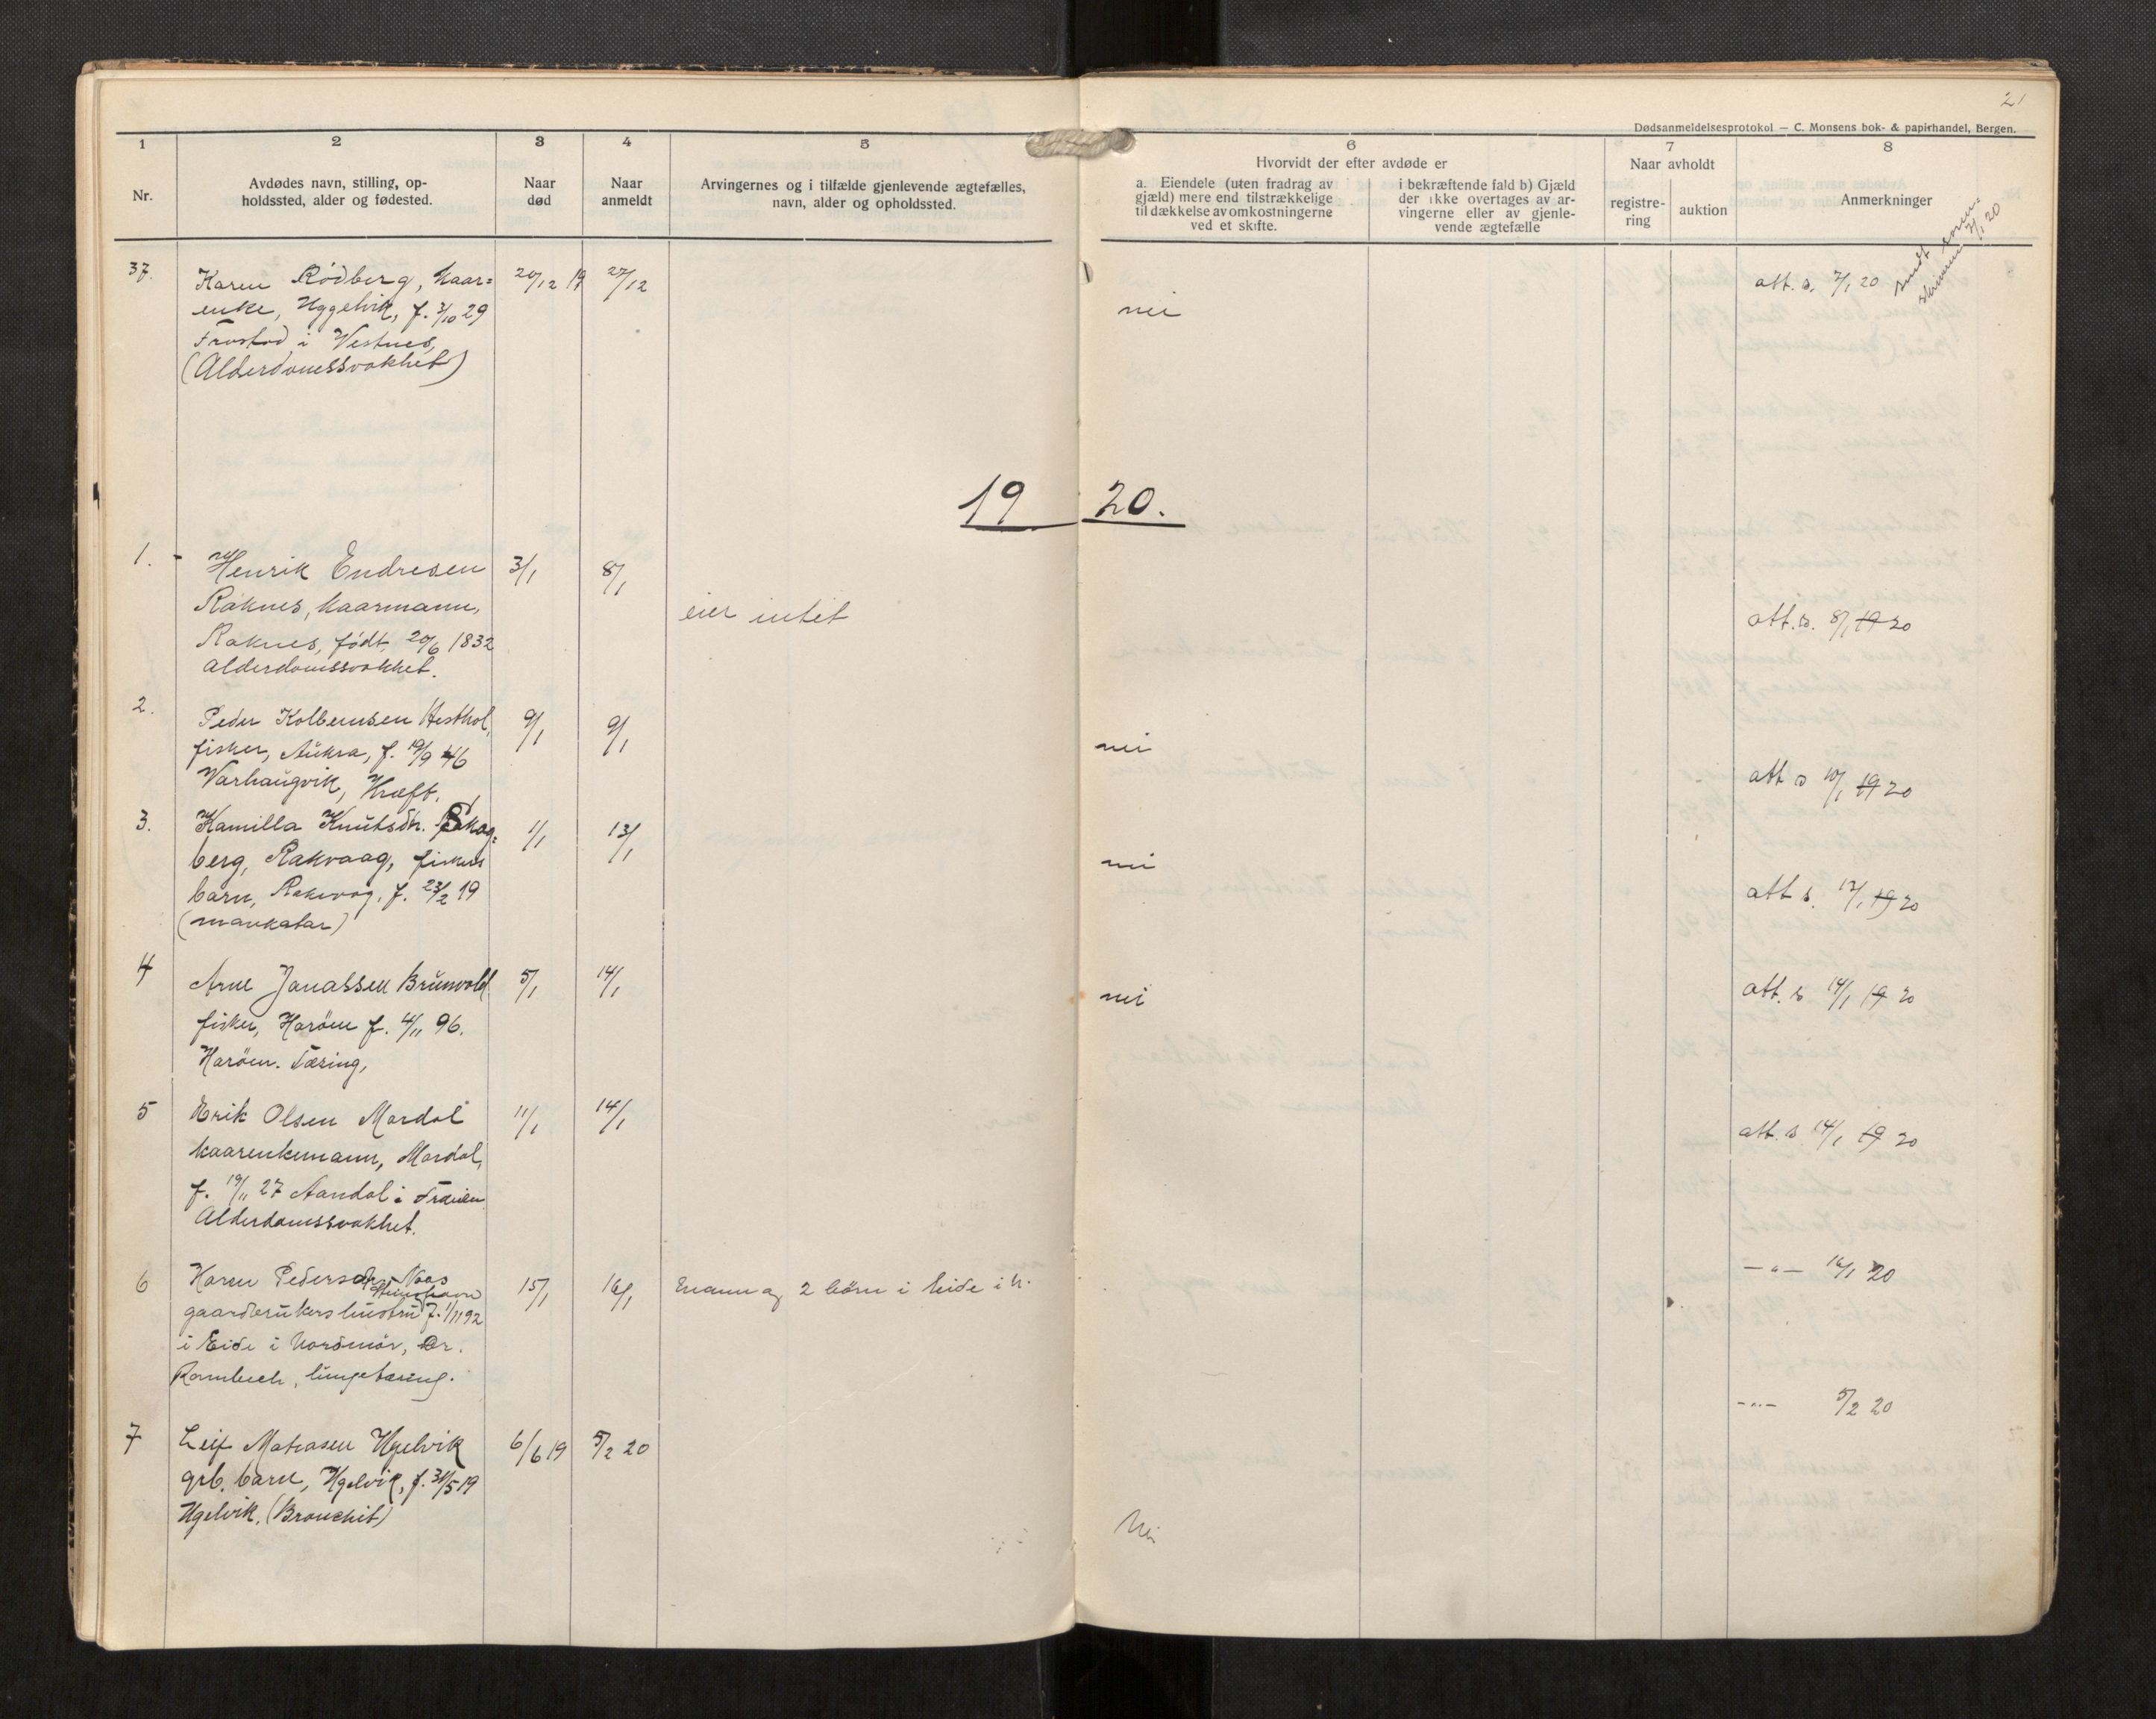 21
Dødsanmeldelsesprotokol — C. Monsens bok- & papirhandel, Bergen.
1
Nr.
2
Avdødes navn, stilling, op-
holdssted, alder og fødested.
3
Naar
død
4
Naar
anmeldt
5
Arvingernes og i tilfælde gjenlevende ægtefælles,
navn, alder og opholdssted.
6
Hvorvidt der efter avdøde er
a. Eiendele (uten fradrag av
gjæld) mere end tilstrækkelige
til dækkelse av omkostningerne
ved et skifte.
i bekræftende fald b) Gjæld
der ikke overtages av ar-
vingerne eller av gjenle-
vende ægtefælle
7
Naar avholdt
registre-
ring
auktion
8
Anmerkninger
37.
Karen Rødberg, kaar=
enke, Uggelvik, f. 3/10 29
Frostad i Vestnes,
(Alderdomssvakhet)
20/12 19
27/12
nei
att. s. 2/1 20
19 20.
1.
Henrik Endresen
Raknes, kaarmann,
Raknes, født 20/6 1832
alderdomssvakhet.
3/1
8/1
eier intet
att. s. 8/1 19 20
2.
Peder Kolbeinsen Hesthol,
fisker, Aukra, f. 19/9 46
Varhaugvik, Kræft.
9/1
9/1
nei
att s 10/1 19 20
3.
Kamilla Knutsdtr. Skog=
berg, Rakvaag, fiskers
barn, Rakvåg, f. 23/2 19
1/1
13/1
nei
att s. 13/1 19 20
4
Arne Jonassen Brunvold
fisker, Harøen f. 4/11 96.
Harøen. Tæring,
5/1
14/1
nei
att. s 14/1 19 20
5
Erik Olsen Mordal
kaarenkemann, Mordal,
f. 19/11 27 Aandal i
Alderdomssvakhet.
11/1
14/1
att. s 14/1 19 20
6
Karen Pedersdtr. Naas
gaardbrukers hustru f. 1/11 92
i Eide i Nordmør, Dr.
lungetæring.
15/1
16/1
mann og 2 børn i Eide i N.
—„— 16/1 20
7
Leif Matiasen Ugelvik
grb. barn, Ugelvik, f. 31/5 19
Ugelvik. (Bronchit)
6/6 19
5/2 20
Nei
—„— 5/2 20